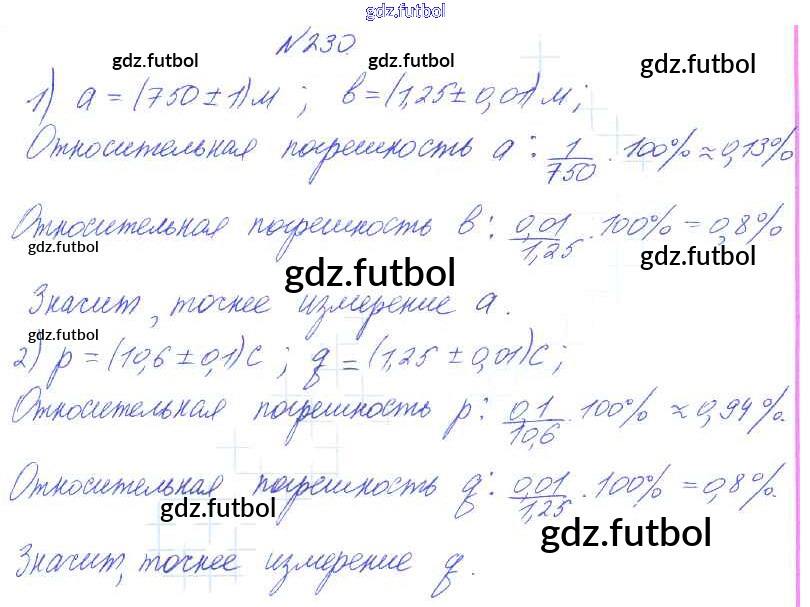 gdz.futbol
№230.
gdz.futbol gdz.futbol gdz.futbol
1) a = (750 ± 1) м ; в = (1,25 ± 0,01) м ;
Относительная погрешность a : 1/750 · 100% ≈ 0,13%
Относительная погрешность в : 0,01/1,25 · 100% = 0,8%
gdz.futbol gdz.futbol
gdz.futbol
Значит, точнее измерение a.
gdz.futbol
2) p = (10,6 ± 0,1) с ; q = (1,25 ± 0,01) с ;
Относительная погрешность p : 0,1/10,6 · 100% ≈ 0,94%.
Относительная погрешность q : 0,01/1,25 · 100% = 0,8%.
gdz.futbol gdz.futbol
Значит, точнее измерение q.